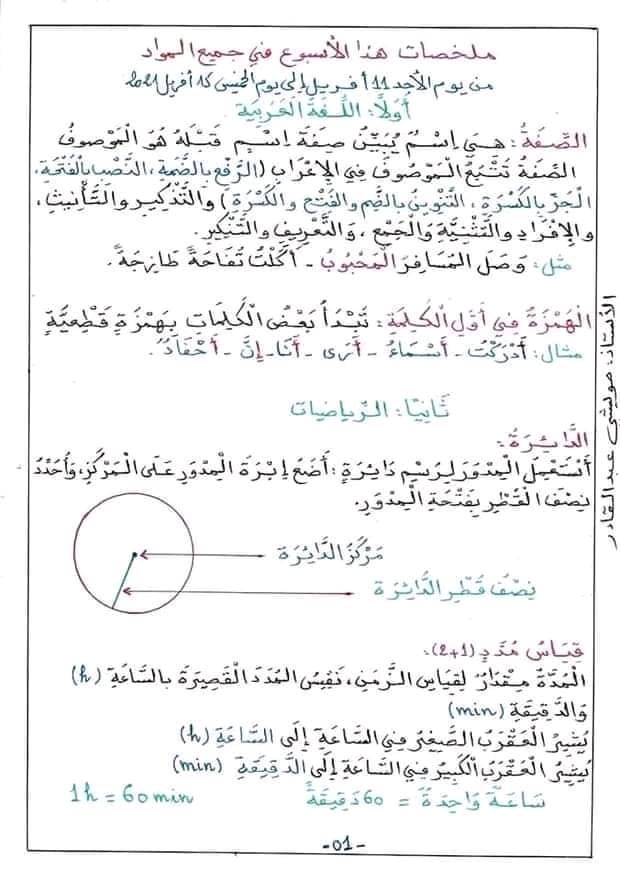 ملخصات هذا الأسبوع في جميع المواد
من يوم الأحد 11 أفريل إلى يوم الخميس 15 أفريل 2021
أولاً: اللُّغَةُ العَرَبِيَّة
الصِّفَةُ: هِيَ اِسْمٌ يُبَيِّنُ صِفَةَ اِسْمٍ قَبْلَهُ هُوَ الْمَوْصُوفُ
الصِّفَةُ تَتْبَعُ الْمَوْصُوفَ فِي الإِعْرَابِ (الرَّفْعِ بِالضَّمَّةِ، النَّصْبِ بِالْفَتْحَةِ،
الْجَرِّ بِالْكَسْرَةِ، التَّنْوِينُ بِالضَّمِّ وَالْفَتْحِ وَالْكَسْرَةِ) وَالتَّذْكِيرِ وَالتَّأْنِيثِ،
وَالإِفْرَادِ وَالتَّثْنِيَّةِ وَالْجَمْعِ، وَالتَّعْرِيفِ وَالتَّنْكِيرِ.
مثل: وَصَلَ الْمُسَافِرُ الْمَحْبُوبُ - أَكَلْتُ تُفَاحَةً طَازِجَةً.
الْهَمْزَةُ فِي أَوَّلِ الْكَلِمَةِ: تَبْدَأُ بَعْضُ الْكَلِمَاتِ بِهَمْزَةٍ قَطْعِيَّةٍ
مثال: أَدْرَكْتُ - أَسْمَاءُ - أَرَى - أَنَا - إِنَّ - أَحْفَادُ.
ثَانِيًا: الرِّيَاضِيَات
الدَّائِرَةُ:
أَسْتَعْمِلُ الْمِدْوَرَ لِرَسْمِ دَائِرَةٍ: أَضَعُ إِبْرَةَ الْمِدْوَرِ عَلَى الْمَرْكَزِ، وَأُحَدِّدُ
نِصْفَ الْقُطْرِ بِفَتْحَةِ الْمِدْوَرِ.
مَرْكَزُ الدَّائِرَةِ
نِصْفُ قُطْرِ الدَّائِرَةِ
قِيَاسُ مُدَدٍ (1+2):
الْمُدَّةُ مِقْدَارٌ لِقِيَاسِ الزَّمَنِ، نَقِيسُ الْمُدَدَ الْقَصِيرَةَ بِالسَّاعَةِ (h)
وَالدَّقِيقَةِ (min)
يُشِيرُ الْعَقْرَبُ الصَّغِيرُ فِي السَّاعَةِ إِلَى السَّاعَةِ (h)
يُشِيرُ الْعَقْرَبُ الْكَبِيرُ فِي السَّاعَةِ إِلَى الدَّقِيقَةِ (min)
سَاعَةٌ وَاحِدَةٌ = 60 دَقِيقَةً 1h = 60 min
-01-
الأستاذ: مويشي عبد القادر